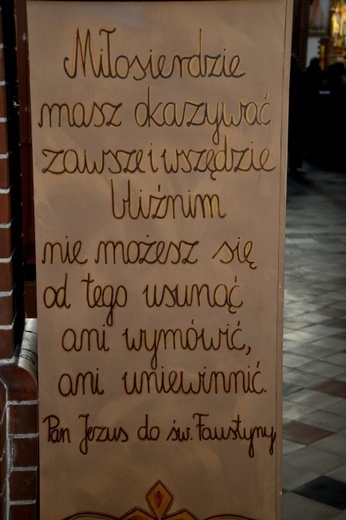 Miłosierdzie
masz okazywać
zawsze i wszędzie
bliźnim
nie możesz się
od tego usunąć
ani wymówić,
ani uniewinnić.
Pan Jezus do św. Faustyny